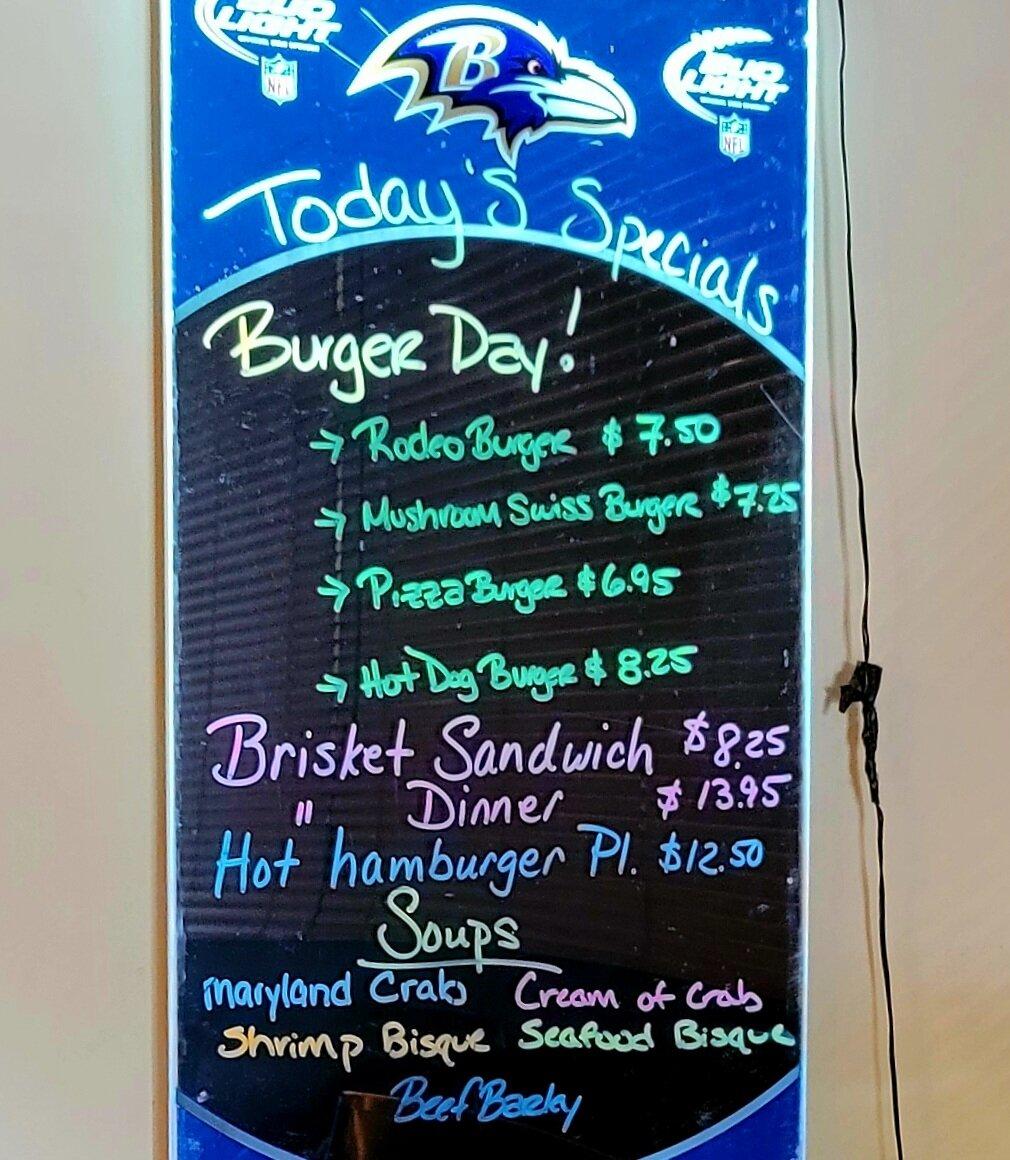 BUD LIGHT
NFL
B
BUD LIGHT
NFL
Today's Specials
Burger Day!
→ Rodeo Burger $ 7.50
→ Mushroom Swiss Burger $7.25
→ Pizza Burger $6.95
→ Hot Dog Burger $ 8.25
Brisket Sandwich $8.25
" Dinner $ 13.95
Hot hamburger Pl. $12.50
Soups
Maryland Crab Cream of Crab
Shrimp Bisque Seafood Bisque
Beef Barley